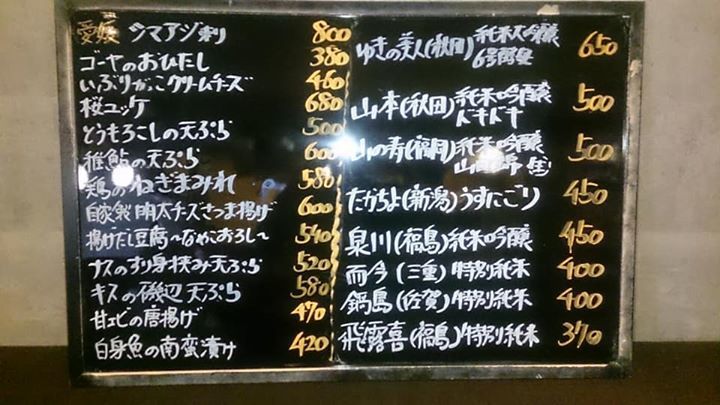 愛媛 シマアジ刺 800
ゴーヤのおひたし 380
いぶりがっこクリームチーズ 460
桜ユッケ 680
とうもろこしの天ぷら 500
稚鮎の天ぷら 600
鶏のねぎまみれ 580
自家製 明太チーズさつま揚げ 600
揚げだし豆腐〜なめこおろし〜 540
ナスのすり身挟み天ぷら 520
キスの磯辺天ぷら 580
甘エビの唐揚げ 470
白身魚の南蛮漬け 420
ゆきの美人(秋田)純米大吟醸 650
6号酵母
山本(秋田)純米吟醸 500
ドキドキ
山の寿(福岡)純米吟醸 500
山田錦
たかちよ(新潟)うすにごり 450
泉川(福島)純米吟醸 450
而今(三重)特別純米 400
鍋島(佐賀)特別純米 400
飛露喜(福島)特別純米 370